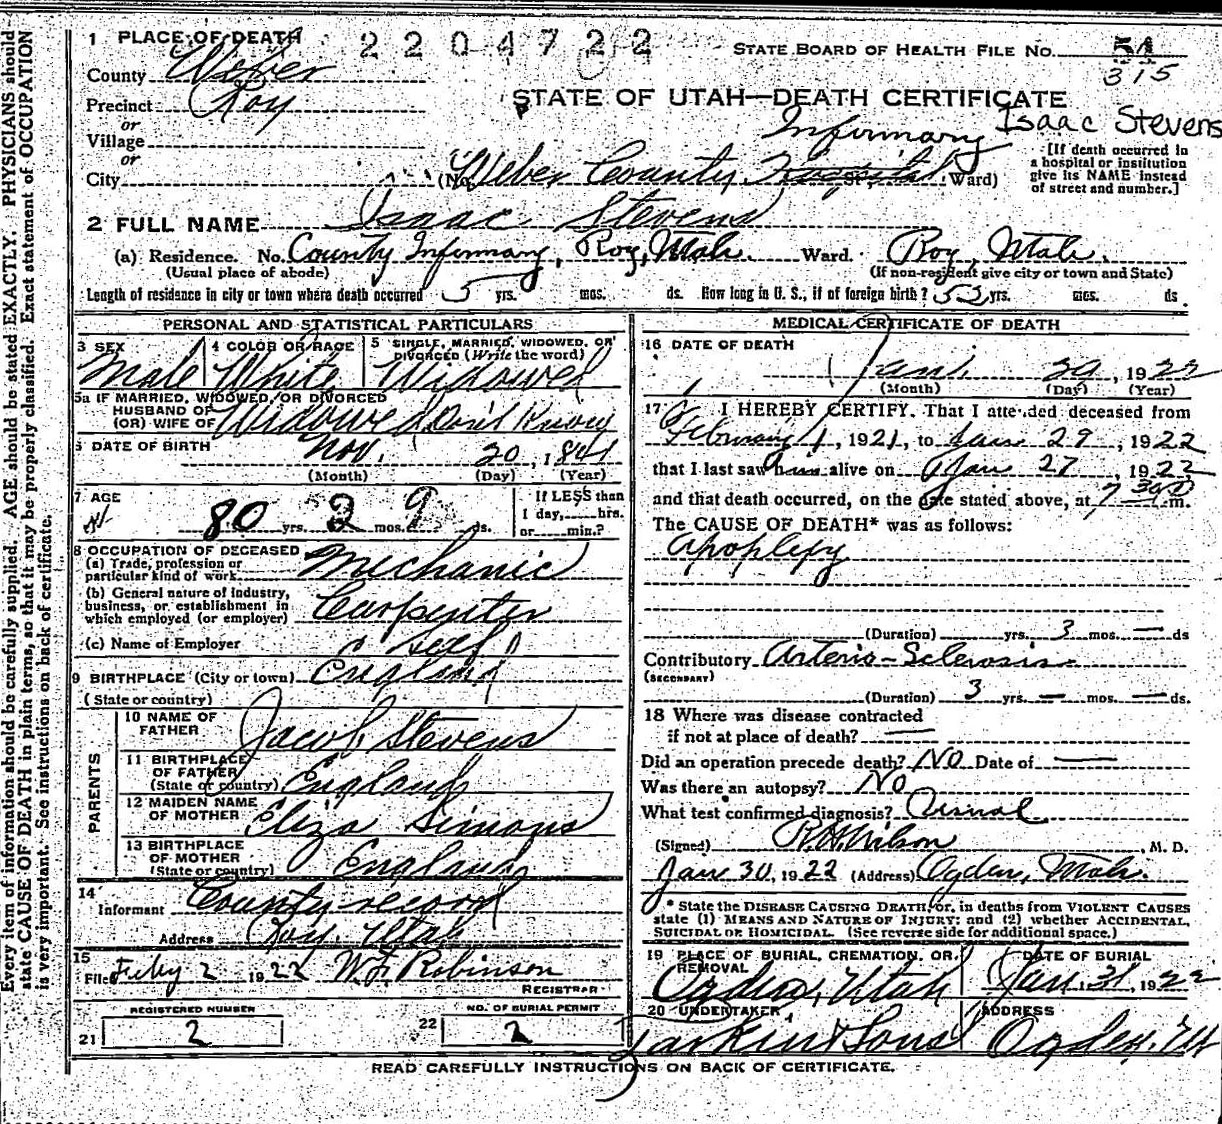 1 PLACE OF DEATH 2204722 STATE BOARD OF HEALTH FILE NO. 54
County Weber 315
Precinct Roy STATE OF UTAH—DEATH CERTIFICATE
or Infirmary Isaac Stevens
Village
or
City (No. Weber County Hospital St. Ward)
[If death occurred in
a hospital or institution
give its NAME instead
of street and number.]
2 FULL NAME Isaac Stevens
(a) Residence. No. County Infirmary, Roy, Utah. Ward. Roy, Utah.
(Usual place of abode) (If non-resident give city or town and State)
Length of residence in city or town where death occurred 5 yrs. mos. ds. How long in U. S., if of foreign birth? 53 yrs. mos. ds.
PERSONAL AND STATISTICAL PARTICULARS
3 SEX 4 COLOR OR RACE 5 SINGLE, MARRIED, WIDOWED, OR
DIVORCED (Write the word)
Male White Widowed
5a IF MARRIED, WIDOWED, OR DIVORCED
HUSBAND OF
(OR) WIFE OF Widowed Don't Know
6 DATE OF BIRTH Nov. 20, 1841
(Month) (Day) (Year)
7 AGE If LESS than
80 yrs. 2 mos. 9 ds. 1 day, hrs.
or min.?
8 OCCUPATION OF DECEASED
(a) Trade, profession or
particular kind of work Mechanic
(b) General nature of industry,
business, or establishment in
which employed (or employer) Carpenter
(c) Name of Employer Self
9 BIRTHPLACE (City or town) England
(State or country)
PARENTS
10 NAME OF
FATHER Jacob Stevens
11 BIRTHPLACE
OF FATHER
(State or country) England
12 MAIDEN NAME
OF MOTHER Eliza Simons
13 BIRTHPLACE
OF MOTHER
(State or country) England
14
Informant County record
Address Roy, Utah
15
Filed Feby 2 1922 W. J. Robinson
REGISTRAR
REGISTERED NUMBER NO. OF BURIAL PERMIT
21 2 22 2
MEDICAL CERTIFICATE OF DEATH
16 DATE OF DEATH
Jan. 29, 1922
(Month) (Day) (Year)
17 I HEREBY CERTIFY, That I attended deceased from
February 1, 1921, to Jan 29, 1922
that I last saw him alive on Jan 27 1922
and that death occurred, on the date stated above, at 7 30 m.
The CAUSE OF DEATH* was as follows:
Apoplexy
(Duration) yrs. 3 mos. — ds
Contributory Arterio-Sclerosis
(SECONDARY)
(Duration) 3 yrs. — mos. — ds.
18 Where was disease contracted
if not at place of death? —
Did an operation precede death? No Date of —
Was there an autopsy? No
What test confirmed diagnosis? Usual
(Signed) R. H. Wilson, M. D.
Jan 30, 1922 (Address) Ogden, Utah.
* State the DISEASE CAUSING DEATH, or, in deaths from VIOLENT CAUSES
state (1) MEANS AND NATURE OF INJURY; and (2) whether ACCIDENTAL,
SUICIDAL OR HOMICIDAL. (See reverse side for additional space.)
19 PLACE OF BURIAL, CREMATION, OR DATE OF BURIAL
REMOVAL
Ogden, Utah Jan. 31, 1922
20 UNDERTAKER ADDRESS
Larkin & Sons Ogden, Ut
READ CAREFULLY INSTRUCTIONS ON BACK OF CERTIFICATE.
Every item of information should be carefully supplied. AGE should be stated EXACTLY. PHYSICIANS should
state CAUSE OF DEATH in plain terms, so that it may be properly classified. Exact statement of OCCUPATION
is very important. See instructions on back of certificate.